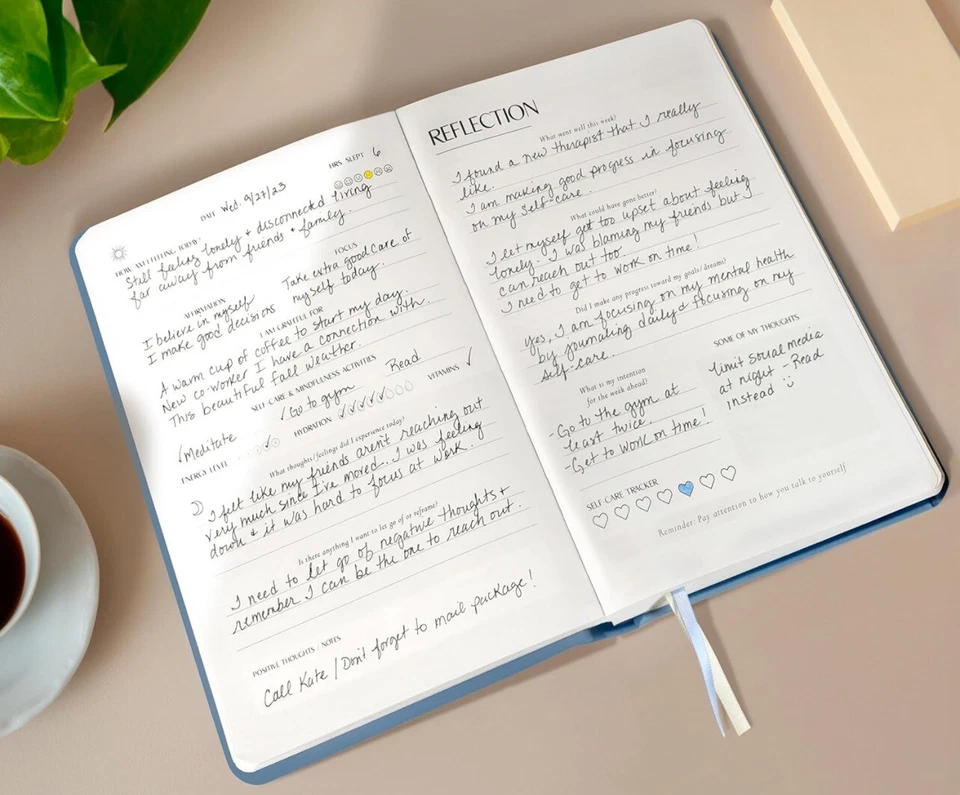 HRS. SLEPT 6
DATE Wed. 9/27/23
HOW AM I FEELING TODAY?
Still feeling lonely + disconnected living
far away from friends + family.
AFFIRMATION
I believe in myself
I make good decisions
FOCUS
Take extra good care of
myself today.
I AM GRATEFUL FOR
A warm cup of coffee to start my day.
New co-worker I have a connection with.
This beautiful fall weather.
SELF-CARE & MINDFULNESS ACTIVITIES
✓Meditate
✓Go to gym
Read
ENERGY LEVEL
HYDRATION
VITAMINS ✓
What thoughts/feelings did I experience today?
I feel like my friends aren't reaching out
very much since I've moved. I was feeling
down & it was hard to focus at work.
Is there anything I want to let go of or reframe?
I need to let go of negative thoughts +
remember I can be the one to reach out.
POSITIVE THOUGHTS / NOTES
Call Kate / Don't forget to mail package!
REFLECTION
What went well this week?
I found a new therapist that I really
like.
I am making good progress in focusing
on my self-care.
What could have gone better?
I let myself get too upset about feeling
lonely. I was blaming my friends but I
can reach out too.
I need to get to work on time!
Did I make any progress toward my goals/dreams?
Yes, I am focusing on my mental health
by journaling daily & focusing on my
self-care.
What is my intention
for the week ahead?
-Go to the gym at
least twice!
-Get to work on time!
SOME OF MY THOUGHTS
limit social media
at night - Read
instead :)
SELF-CARE TRACKER
Reminder: Pay attention to how you talk to yourself